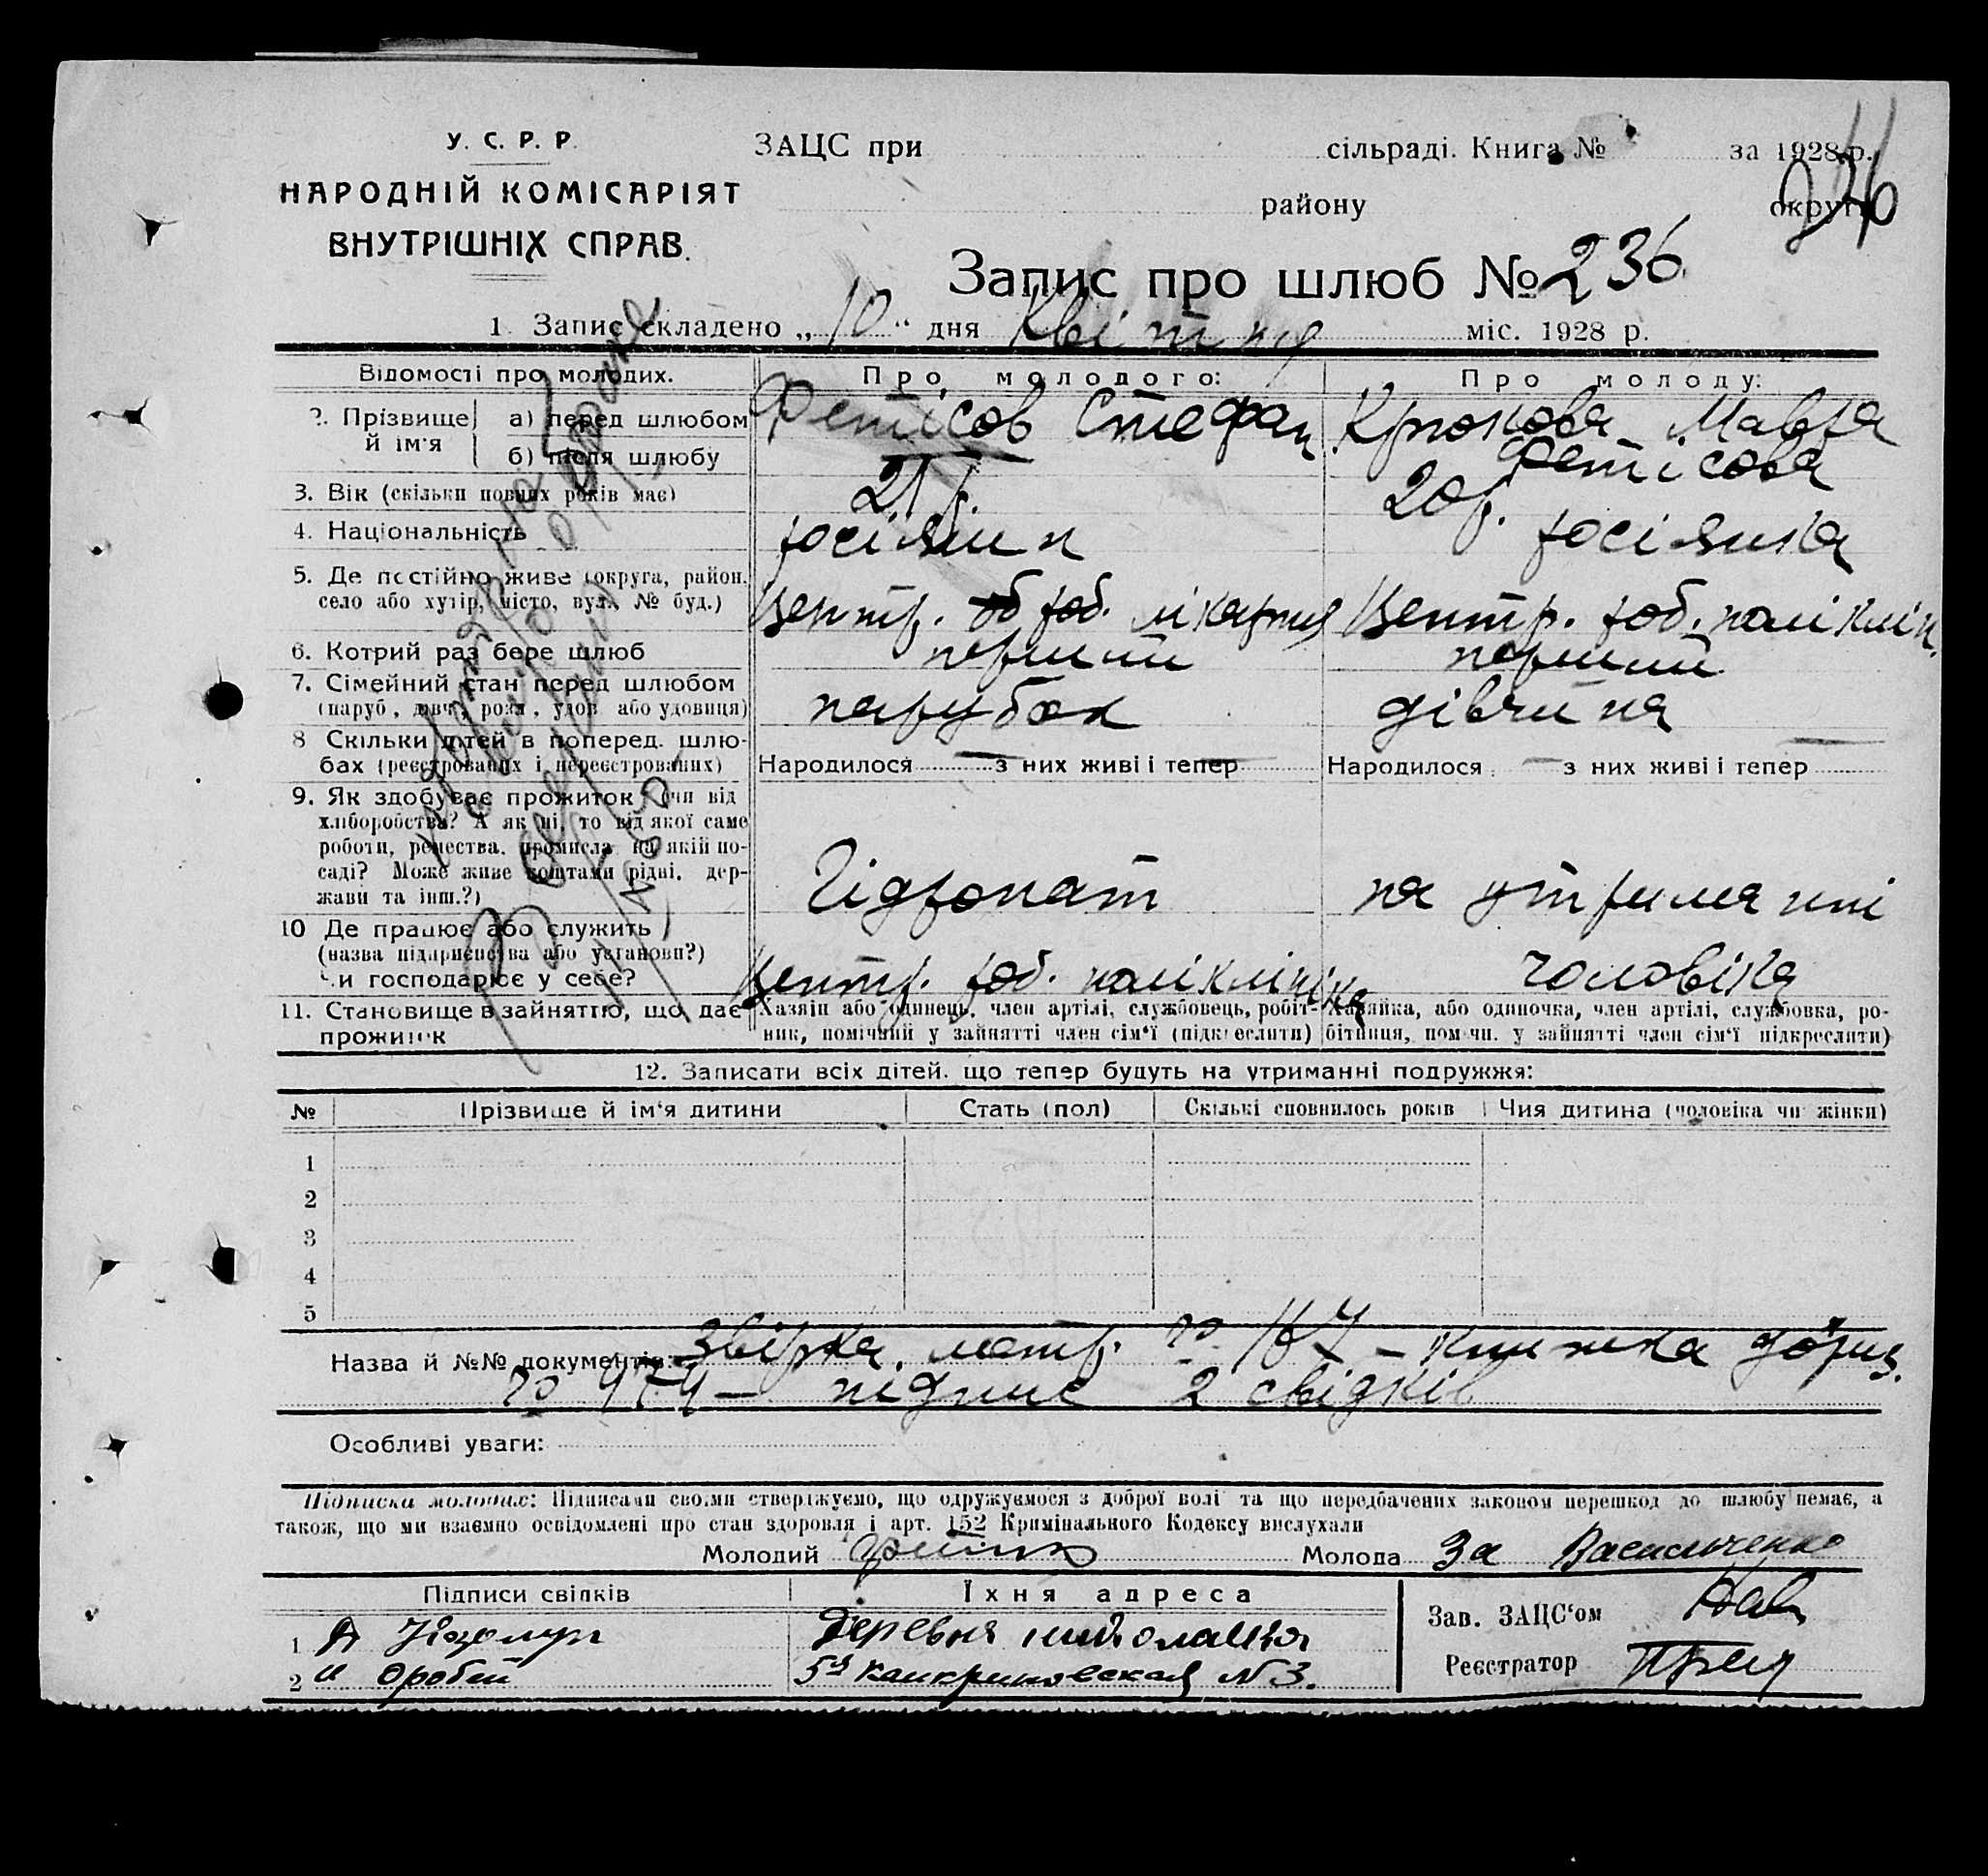 У. С. Р. Р.
НАРОДНІЙ КОМІСАРІЯТ
ВНУТРІШНІХ СПРАВ.
ЗАЦС при сільраді. Книга № за 1928 р.
району округи
Запис про шлюб № 236
1. Запис складено „ 10 “ дня Квітня міс. 1928 р.
Відомості про молодих. Про молодого: Про молоду:
2. Прізвище й ім'я
а) перед шлюбом Фетісов Стефан Крюкова Мавра
б) після шлюбу Фетісова
3. Вік (скільки повних років має) 21 р. 20 р.
4. Національність росіянин росіянка
5. Де постійно живе (округа, район, село або хутір, місто, вул., № буд.) Центр. роб. лікарня Центр. роб. поліклін.
6. Котрий раз бере шлюб перший перший
7. Сімейний стан перед шлюбом парубок дівчина
(паруб., дівч., розл., удов. або удовиця)
8 Скільки дітей в поперед. шлюбах (реєстрованих і нереєстрованих) Народилося — з них живі і тепер — Народилося — з них живі і тепер
9. Як здобуває прожиток (чи від
хліборобства? А як ні, то від якої саме
роботи, ремества, промисла, на якій по-
саді? Може живе коштами рідні, дер-
жави та інш.?) Гідропат на утриманні
10 Де працює або служить
(назва підприємства або установи?)
Чи господарює у себе? Центр. роб. поліклініка чоловіка
11. Становище в зайняттю, що дає прожиток
Хазяїн або одинець, член артілі, службовець, робіт-
ник, помічний у зайнятті член сім'ї (підкреслити)
Хазяйка, або одиночка, член артілі, службовка, ро-
бітниця, пом-чн. у зайнятті член сім'ї підкреслити)
12. Записати всіх дітей, що тепер будуть на утриманні подружжя:
№ Прізвище й ім'я дитини Стать (пол) Скількі сповнилось років Чия дитина (чоловіка чи жінки)
1
2
3
4
5
Назва й №№ документів: Звірка. метр. № 167 — книжка
— підпис 2 свідків
Особливі уваги:
Підписка молодих: Підписами своїми стверджуємо, що одружуємося з доброї волі та що передбачених законом перешкод до шлюбу немає, а
також, що ми взаємно освідомлені про стан здоровля і арт. 152 Кримінального Кодексу вислухали
Молодий Молода За Васильченко
Підписи свідків Їхня адреса
1 Деревня
2 № 3.
Зав. ЗАЦС'ом
Реєстратор